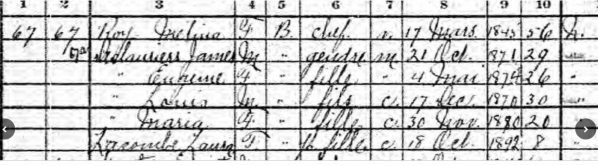 1 2 3 4 5 6 7 8 9 10
67 67 Roy Melina F B chef v. 17 Mars 1845 56
James M " gendre m 21 Oct. 1871 29
" F " fille " 4 Mai 1874 26
" Louis M " fils c. 17 Dec. 1870 30
" Maria F " fille c. 30 Nov. 1880 20
Lacombe Laura F " p. fille c. 18 Oct. 1892 8